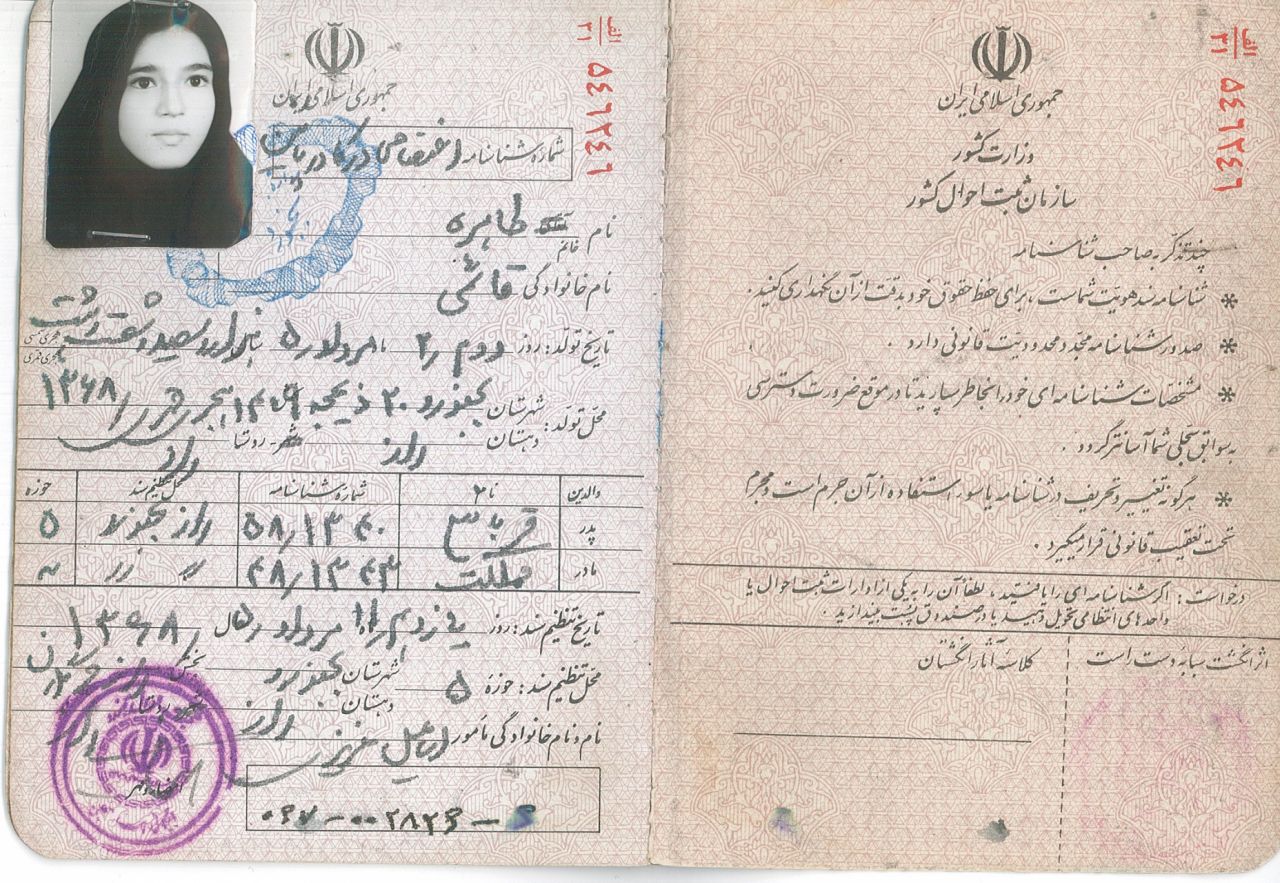 جمهوری اسلامی ایران
وزارت کشور
سازمان ثبت احوال کشور
الف
۳۱
۵۴۶۲۴۶
چند تذکر به صاحب شناسنامه
* شناسنامه سند هویت شماست ، برای حفظ حقوق خود بدقت از آن نگهداری کنید .
* صدور شناسنامه مجدد محدودیت قانونی دارد .
* مشخصات شناسنامه ای خود را بخاطر بسپارید تا در موقع ضرورت دسترسی
به سوابق سجلی شما آسانتر گردد .
* هرگونه تغییر و تحریف در شناسنامه یا سوء استفاده از آن جرم است و مجرم
تحت تعقیب قانونی قرار میگیرد .
درخواست : اگر شناسنامه ای را یافتید ، لطفاً آن را به یکی از ادارات ثبت احوال یا
واحدهای انتظامی تحویل دهید یا در صندوق پست بیندازید .
اثر انگشت سبابه دست راست
کلاسه آثار انگشتان
جمهوری اسلامی ایران
الف
۳۱
۵۴۶۲۴۶
شماره شناسنامه
نام خانم طاهره
نام خانوادگی قائمی
تاریخ تولد : روز دوم ۲ مرداد ۵ هزار و سیصد و شصت و هشت
هجری شمسی
هجری قمری
محل تولد : شهرستان بجنورد ۳۰ ذیحجه ۱۴۰۹ هجری قمری ۱۳۶۸
دهستان راز شهر - روستا راز
والدین نام شماره شناسنامه محل تنظیم سند حوزه
پدر ۵۸/۱۳۴۰ راز بجنورد ۵
مادر مملکت ۴۸/۱۳۴۳
تاریخ تنظیم سند : روز یازدهم ۱۱ ماه مرداد ۵ سال ۱۳۶۸
محل تنظیم سند : حوزه ۵ شهرستان بجنورد بخش
دهستان راز
نام و نام خانوادگی مأمور عزیزی
امضاء و مهر